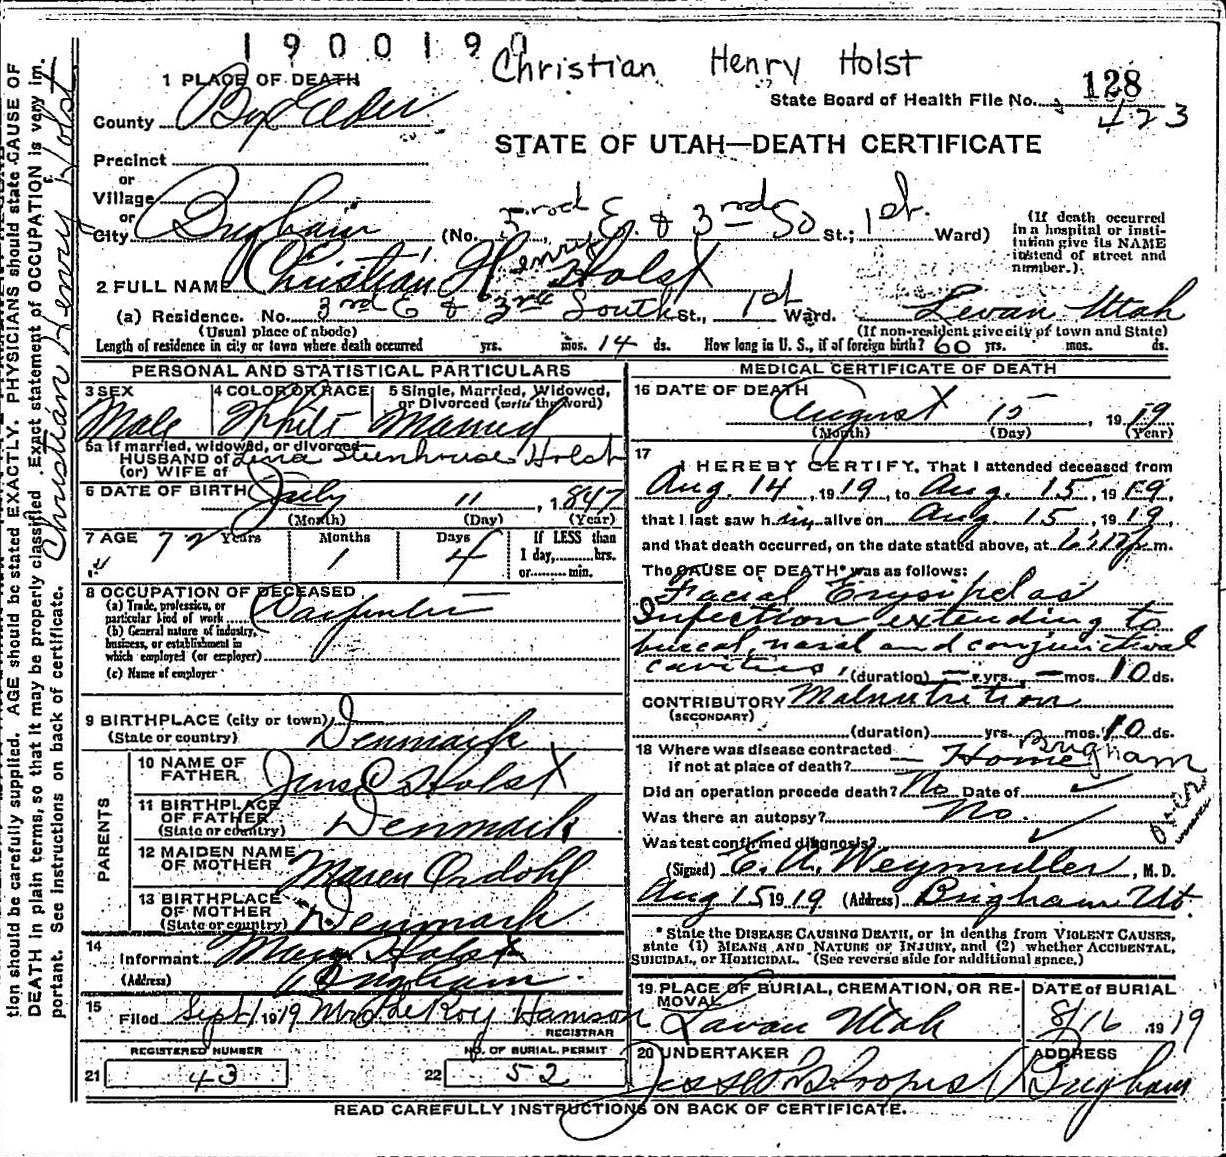 1900190
Christian Henry Holst
128
State Board of Health File No. 423
STATE OF UTAH—DEATH CERTIFICATE
1 PLACE OF DEATH
County Box Elder
Precinct
or
Village
or
City Brigham (No. 3rd E. & 3rd So St.; 1st. Ward)
(If death occurred in a hospital or institution give its NAME instead of street and number.)
2 FULL NAME Christian Henry Holst
(a) Residence. No. 3rd E & 3rd South St., 1st Ward. Levan Utah
(Usual place of abode) (If non-resident give city of town and State)
Length of residence in city or town where death occurred yrs. mos. 14 ds. How long in U. S., if of foreign birth? 60 yrs. mos. ds.
PERSONAL AND STATISTICAL PARTICULARS
3 SEX Male
4 COLOR OR RACE White
5 Single, Married, Widowed, or Divorced (write the word) Married
5a If married, widowed, or divorced
HUSBAND of Lena Stenhouse Holst
(or) WIFE of
6 DATE OF BIRTH July 11, 1847
(Month) (Day) (Year)
7 AGE 72 Years 1 Months 4 Days
If LESS than 1 day, hrs. or min.
8 OCCUPATION OF DECEASED
(a) Trade, profession, or particular kind of work Carpenter
(b) General nature of industry, business, or establishment in which employed (or employer)
(c) Name of employer
9 BIRTHPLACE (city or town)
(State or country) Denmark
PARENTS
10 NAME OF FATHER Jens C Holst
11 BIRTHPLACE OF FATHER (State or country) Denmark
12 MAIDEN NAME OF MOTHER Maren Ordohl
13 BIRTHPLACE OF MOTHER (State or country) Denmark
14
Informant Holst
(Address) Brigham
15
Filed Sept 1 1919 Harrison
REGISTRAR
REGISTERED NUMBER
21 43
NO. OF BURIAL PERMIT
22 52
MEDICAL CERTIFICATE OF DEATH
16 DATE OF DEATH August 15, 1919
(Month) (Day) (Year)
17
I HEREBY CERTIFY, That I attended deceased from
Aug. 14, 1919, to Aug. 15, 1919,
that I last saw him alive on Aug. 15, 1919,
and that death occurred, on the date stated above, at m.
The CAUSE OF DEATH* was as follows:
Facial Erysipelas
Infection extending to
buccal, nasal and conjunctival
cavities, (duration) — yrs. — mos. 10 ds.
CONTRIBUTORY Malnutrition
(SECONDARY)
(duration) yrs. mos. 10 ds.
18 Where was disease contracted
if not at place of death? — Home Brigham
Did an operation precede death? No Date of ✓
Was there an autopsy? No.
Was test confirmed diagnosis? ✓
over
(Signed) E. A. Weymuller, M. D.
Aug 15 1919 (Address) Brigham Ut.
* State the DISEASE CAUSING DEATH, or in deaths from VIOLENT CAUSES,
state (1) MEANS AND NATURE OF INJURY, and (2) whether ACCIDENTAL,
SUICIDAL, or HOMICIDAL. (See reverse side for additional space.)
19 PLACE OF BURIAL, CREMATION, OR REMOVAL Lavan Utah
DATE of BURIAL 8/16 1919
20 UNDERTAKER
ADDRESS Brigham
READ CAREFULLY INSTRUCTIONS ON BACK OF CERTIFICATE.
tion should be carefully supplied. AGE should be stated EXACTLY. PHYSICIANS should state CAUSE OF
DEATH in plain terms, so that it may be properly classified. Exact statement of OCCUPATION is very im-
portant. See instructions on back of certificate. Christian Henry Holst